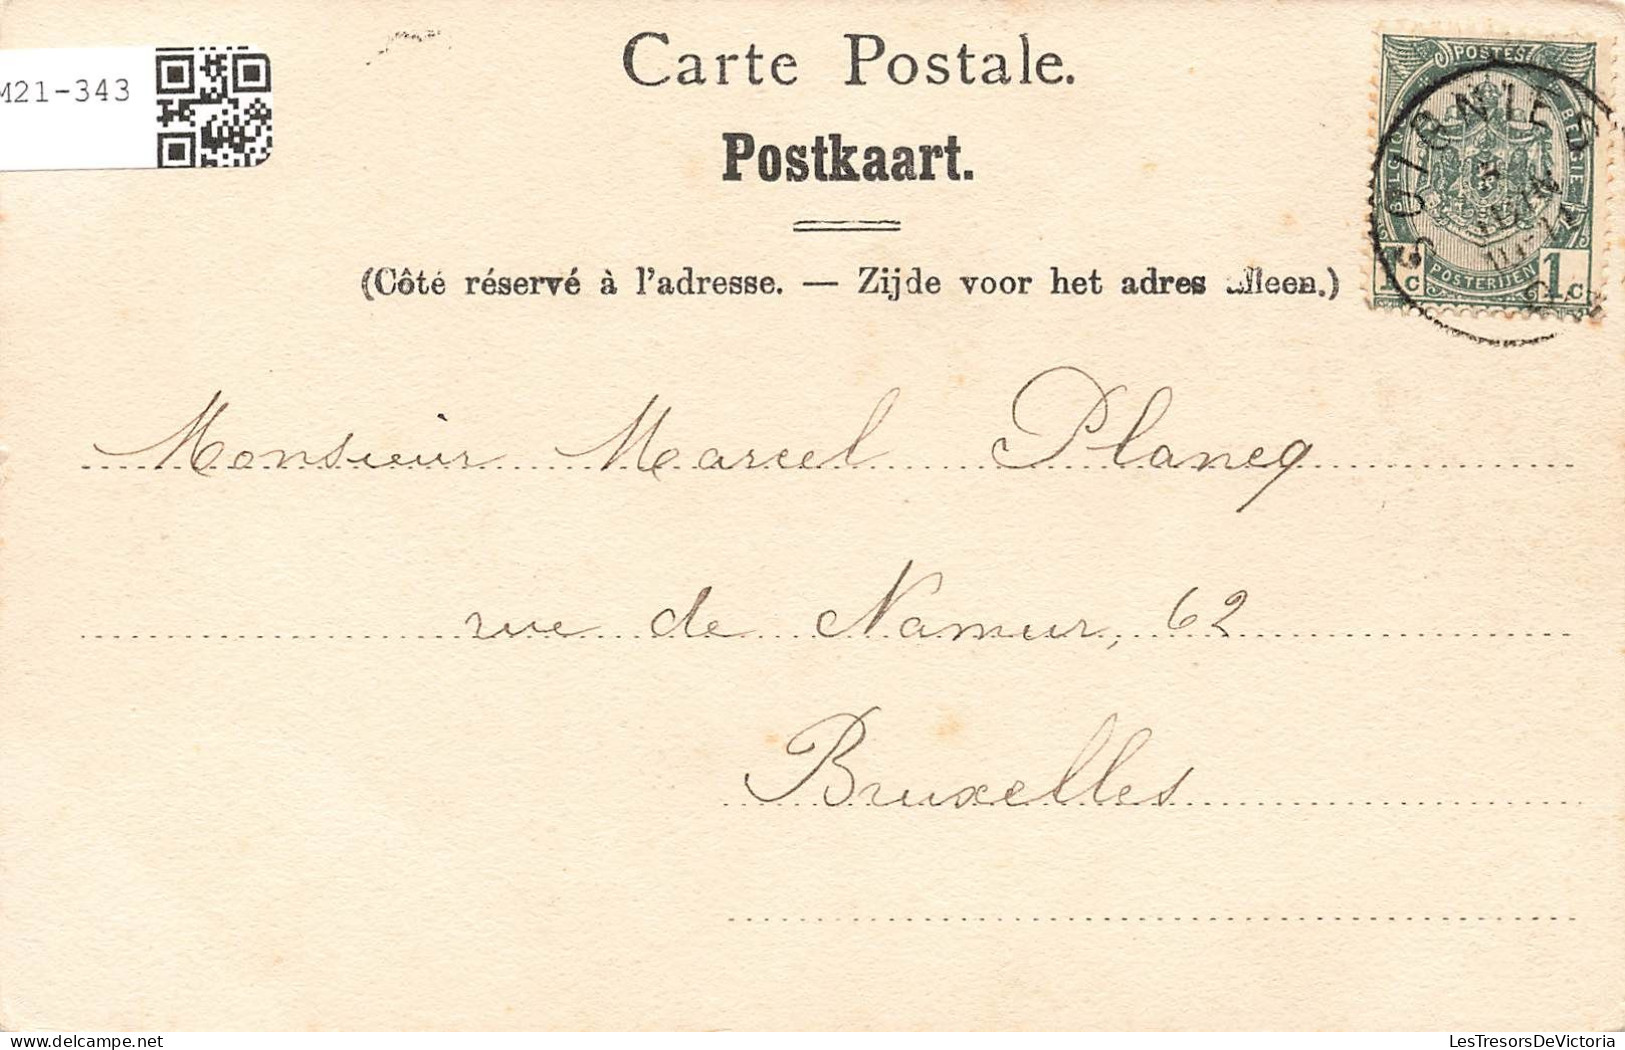 M21-343
Carte Postale.
Postkaart.
(Côté réservé à l'adresse. — Zijde voor het adres alleen.)
POSTES
BELGIQUE
BELGIE
POSTERIJEN
1c 1c
SOIGNIES
JUIN
Monsieur Marcel Plancq
rue de Namur, 62
Bruxelles
LesTresorsDeVictoria